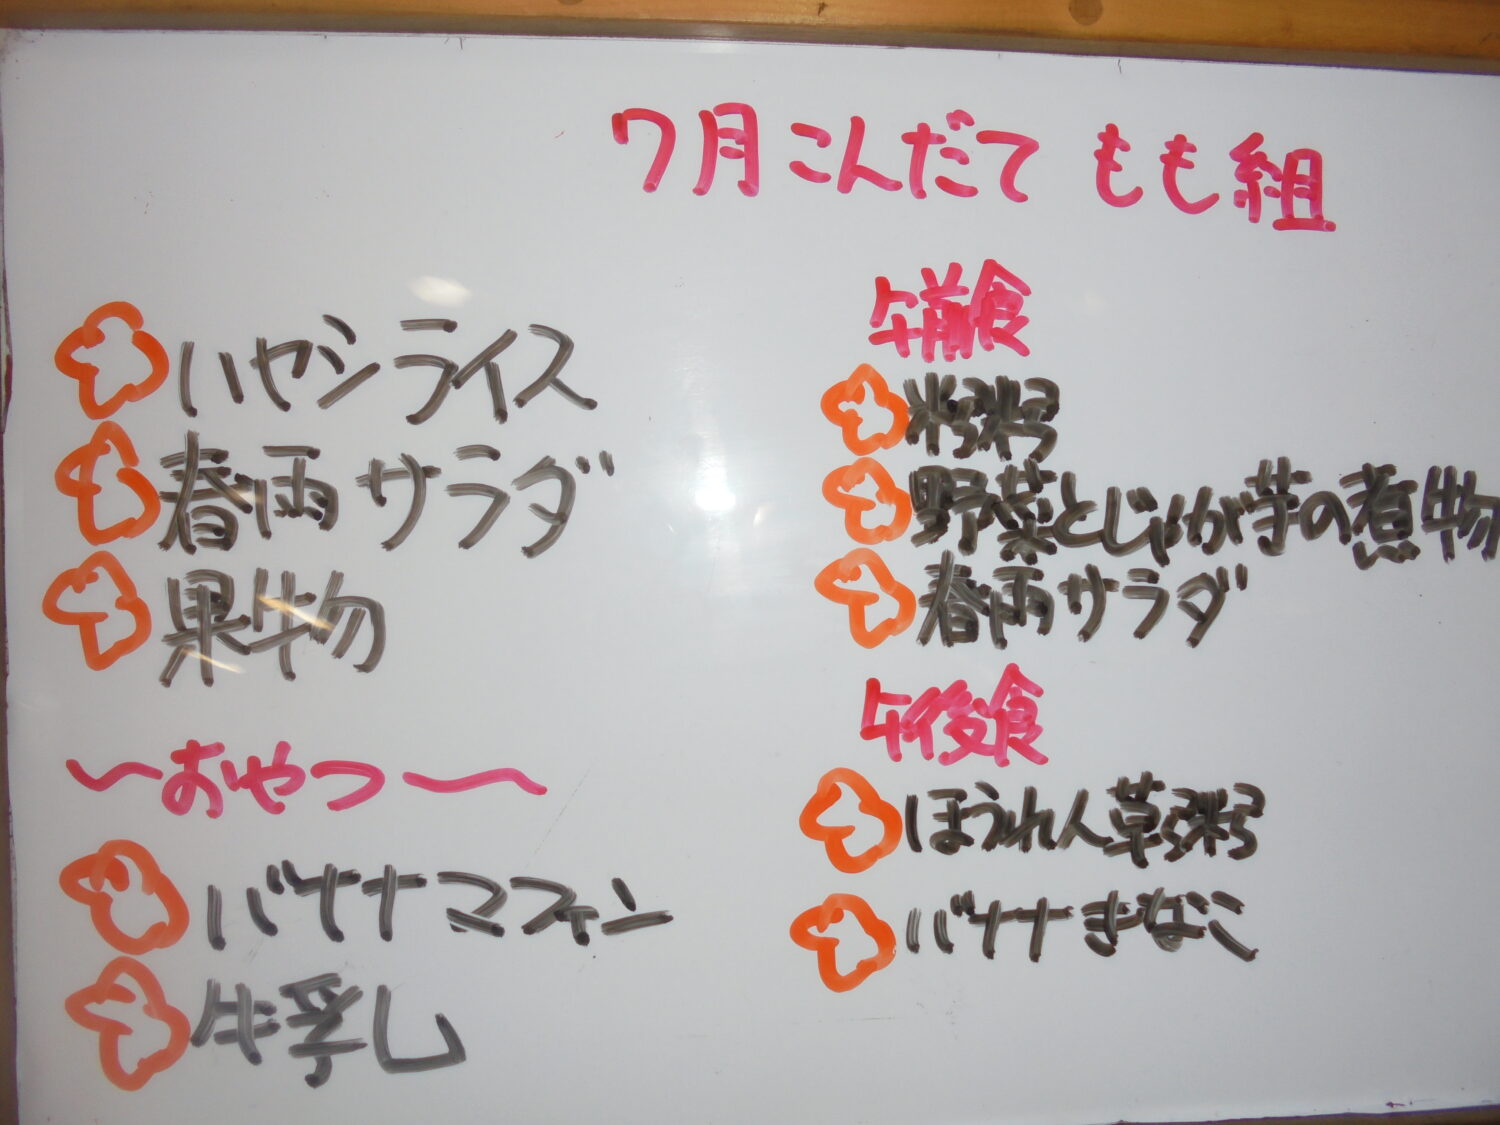 7月こんだて もも組
ハヤシライス
春雨サラダ
果物
〜おやつ〜
バナナマフィン
牛乳
午前食
粥
野菜とじゃが芋の煮物
春雨サラダ
午後食
ほうれん草粥
バナナきなこ